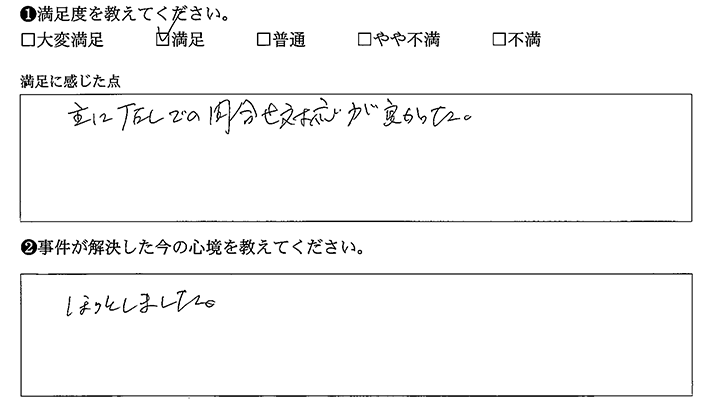 ❶満足度を教えてください。
□大変満足 ☑満足 □普通 □やや不満 □不満
満足に感じた点
主にTELでの問合せ対応が良かった。
❷事件が解決した今の心境を教えてください。
ほっとしました。